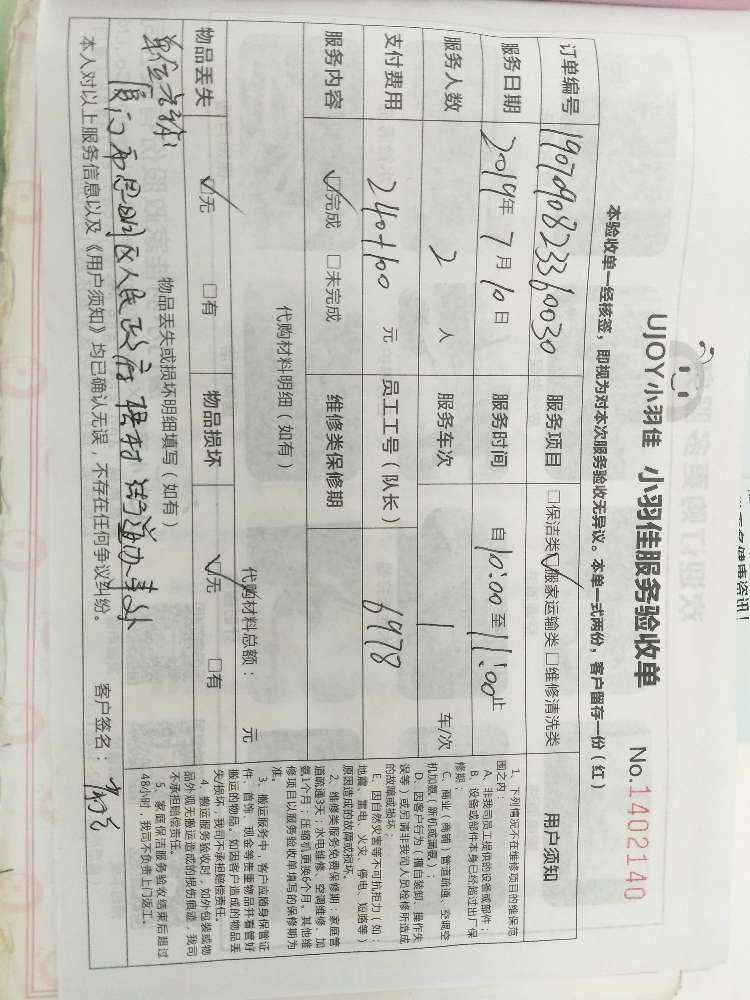 UJOY小羽佳 小羽佳服务验收单
No.1402140
本验收单一经核签,即视为对本次服务验收无异议。本单一式两份,客户留存一份(红)
订单编号 190709082336 0030 服务项目 □保洁类☑搬家运输类□维修清洗类 用户须知
服务日期 2019年7月10日 服务时间 自10:00至11:00止
服务人数 2人 服务车次 1 车/次
支付费用 240+100 元 员工工号(队长) 6978
服务内容 ☑完成 □未完成 维修类保修期
代购材料明细(如有)
代购材料总额: 元
物品丢失 ☑无 □有 物品损坏 ☑无 □有
物品丢失或损坏明细填写(如有)
厦门市思明区人民政府 街道办事处
本人对以上服务信息以及《用户须知》均已确认无误,不存在任何争议纠纷。 客户签名:
1、下列情况不在维修项目的维保范围之内:
A、非我司员工提供的设备或部件;
B、设备或部件本身已经超过出厂保修期;
C、商业(商铺)管道疏通、空调空机加氨(新机或漏氨);
D、因客户行为(擅自装卸、操作失误等)或另请非我司人员检修所造成的故障或损坏;
E、因自然灾害等不可抗拒力(如:地震、雷电、火灾、停电、短路等)原因造成的故障或损坏。
2、维修类服务免费保修期:家庭管道疏通3天;水电维修、空调维修、加氨1个月;压缩机更换6个月。其他维修项目以服务验收单填写的保修期为准。
3、搬运服务中,客户应随身保管证件、首饰、现金等贵重物品并看管好搬运的物品。如因客户造成的物品丢失/损坏,我司不承担赔偿责任。
4、搬运服务验收时,如外包装或物品外观无搬运造成的损伤痕迹,我司不承担赔偿责任。
5、家庭保洁服务验收结束后超过48小时,我司不负责上门返工。